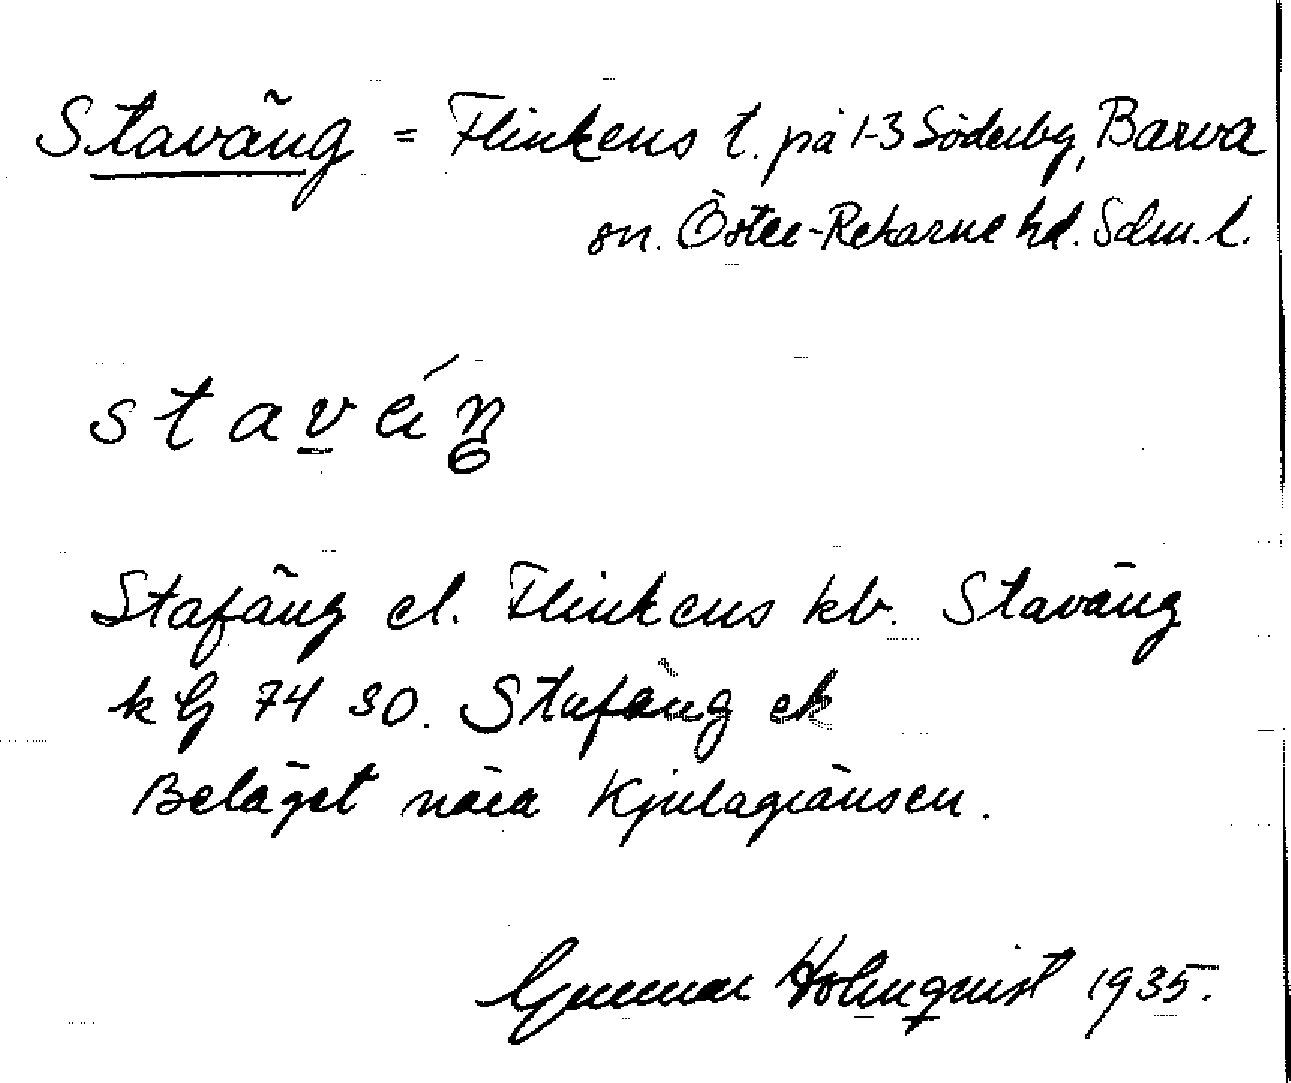 Staväng = Flinkens t. på 1-3 Söderby, Barva
sn. Öster-Rekarne hd. Sdm. l.
staväŋ́
Stafäng el. Flinkens kb. Staväng
k G 74 30. Stafäng ek
Beläget nära Kjulagränsen.
Gunnar Holmquist 1935.